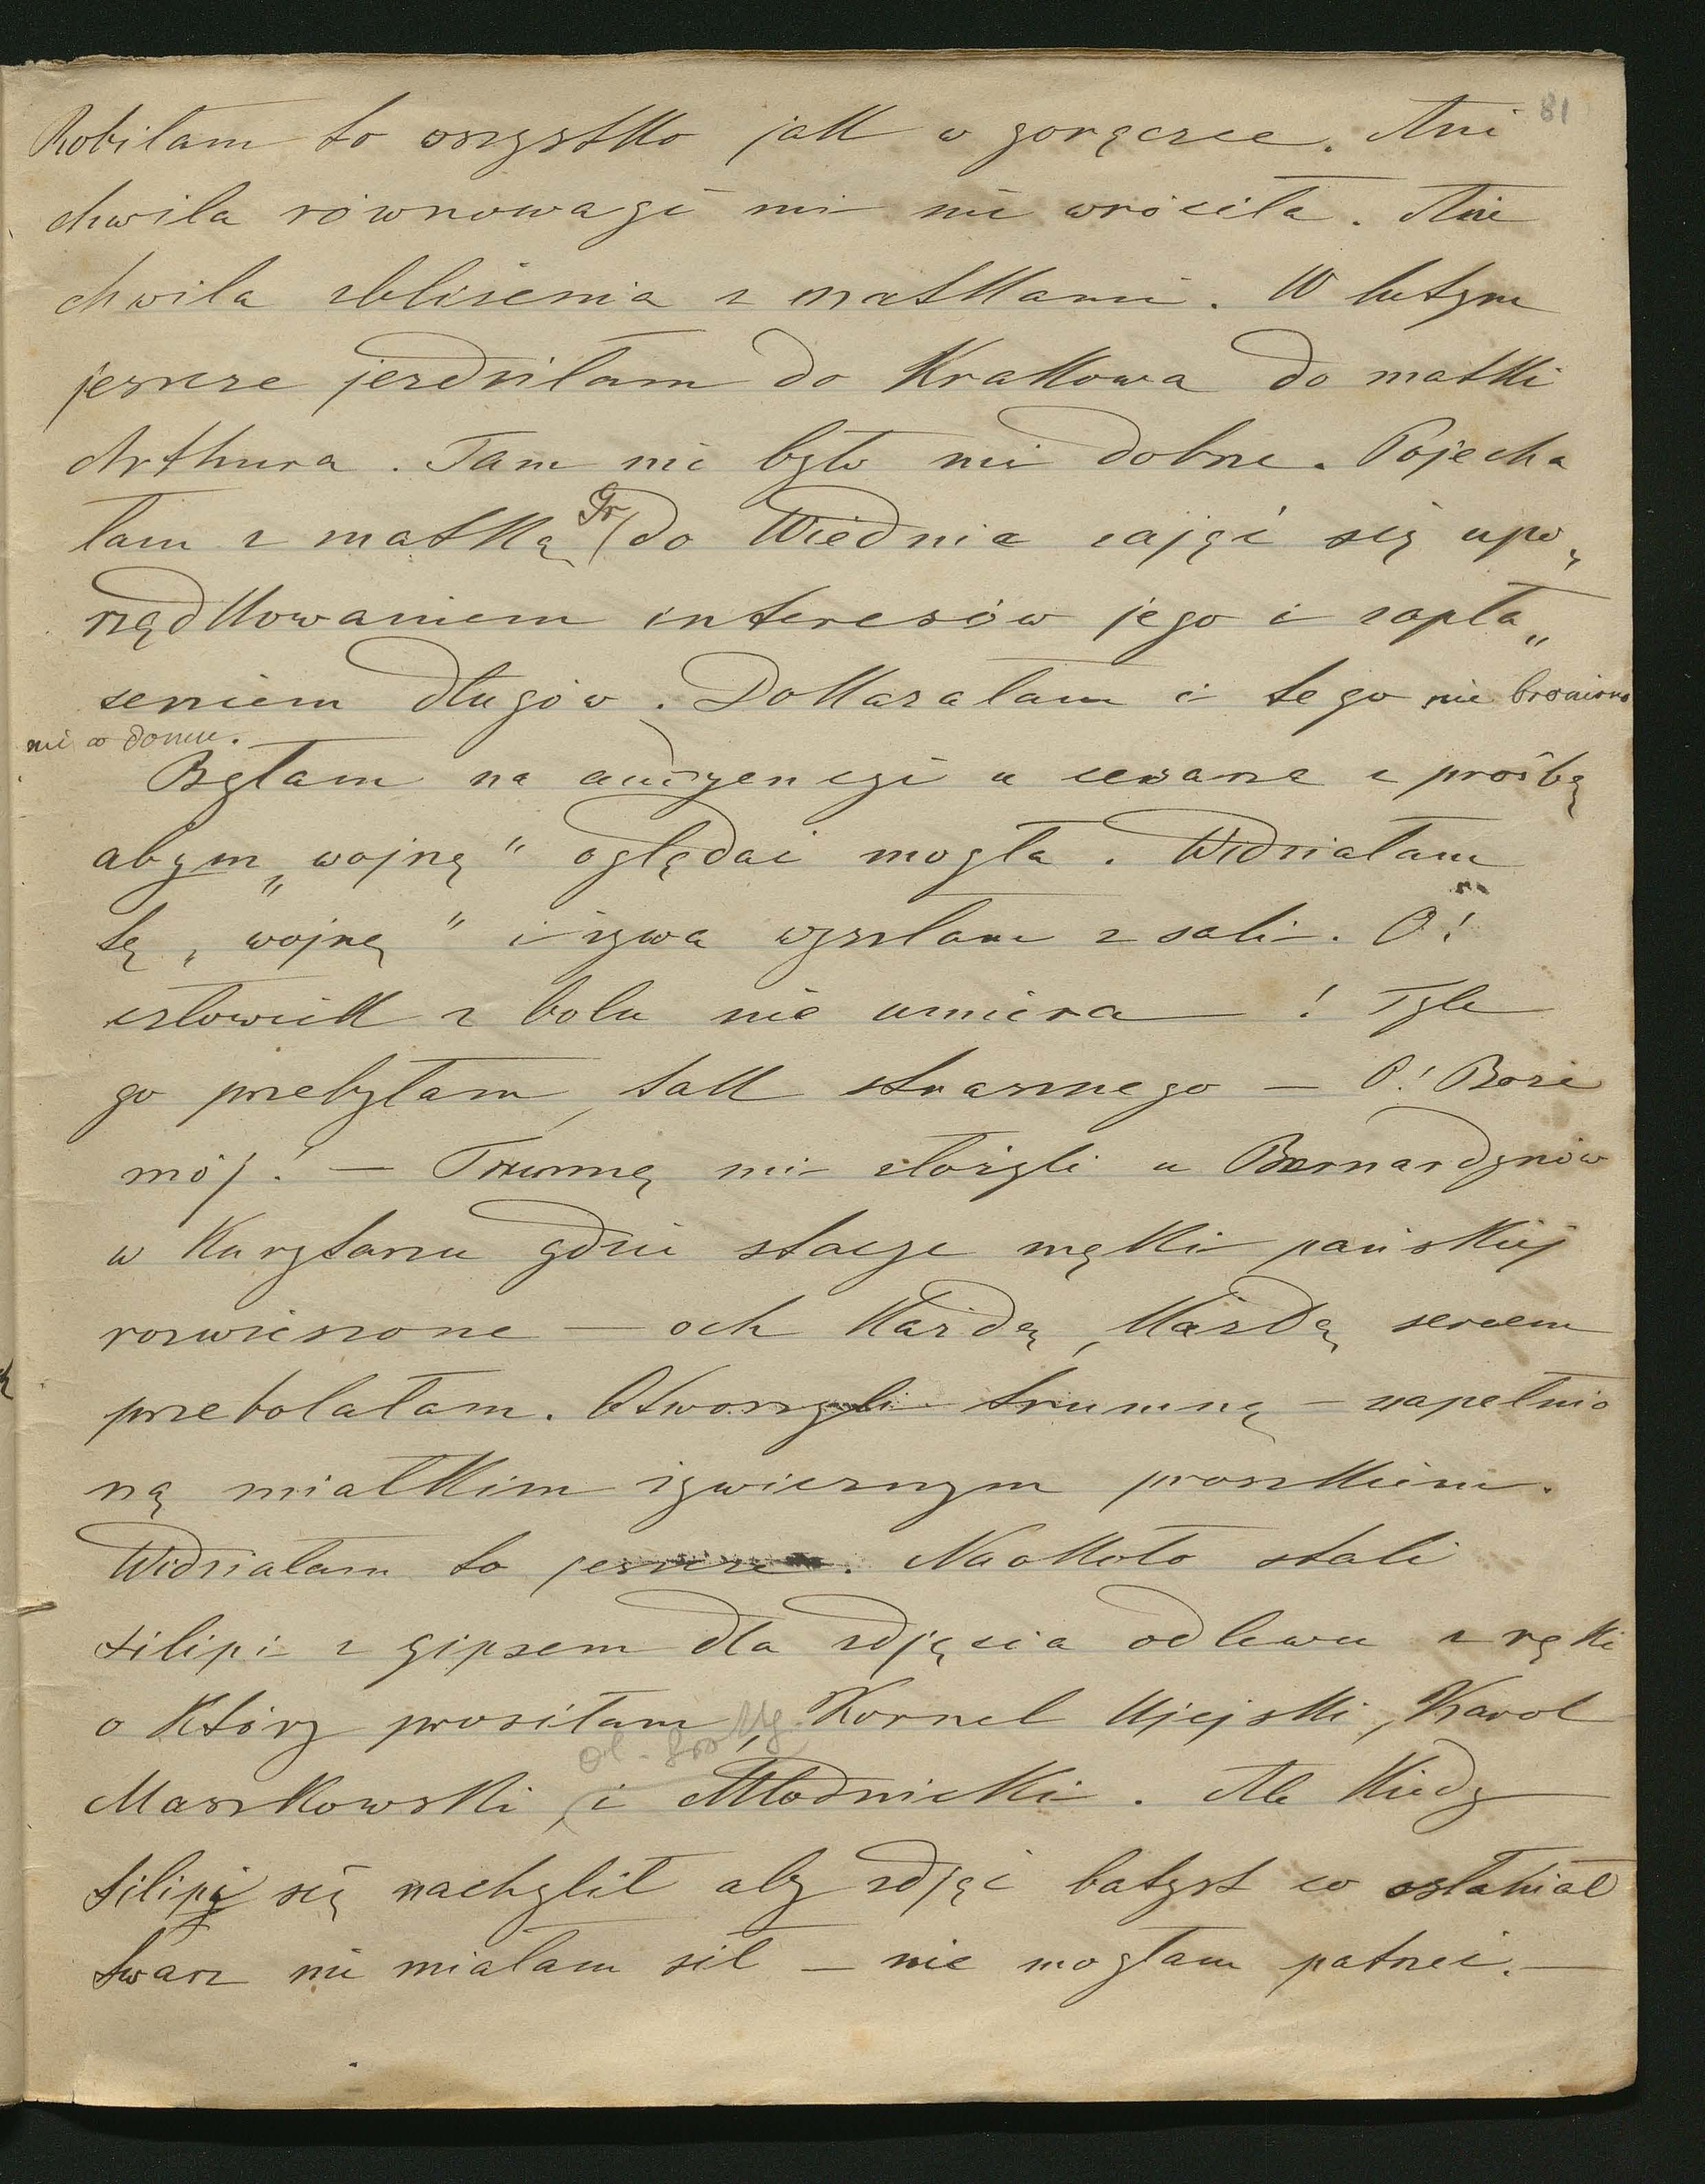 81
Robiłam to wszystko jak w gorączce. Ani
chwila równowagi mi nie wróciła. Ani
chwila zbliżenia z matkami. W lutym
jeszcze jezdziłam do Krakowa do matki
Arthura. Tam nie było mi dobrze. Pojecha
łam z matką Gr. do Wiednia zająć się upo„
rządkowaniem interesów jego i zapła„
ceniem długów. Dokazałam i tego nie broniono
mi w domu.
Byłam na audyencyi u cesarza z prośbą
abym „wojnę" oglądać mogła. Widziałam
tę „wojnę" i żywa wyszłam z sali. O!
człowiek z bolu nie umiera — ! Tyle
go przebyłam, tak strasznego — O! Boże
mój! — Trumnę mi złożyli u Bernardynów
w Kurytarzu gdzie stacye męki pańskiej
rozwieszone — och każdą, każdą sercem
przebolałam. Otworzyli trumnę — napełnio
ną miałkim żywicznym proszkiem.
Widziałam to jeszcze. Naokoło stali
Filipi z gipsem dla zdjęcia odlewu z ręki
o który prosiłam, Kornel Ujejski, Karol
Maszkowski, i Młodnicki. Ale kiedy
Filipi się nachylił aby zdjąć batyst co osłaniał
twarz nie miałam sił — nie mogłam patrzeć. —